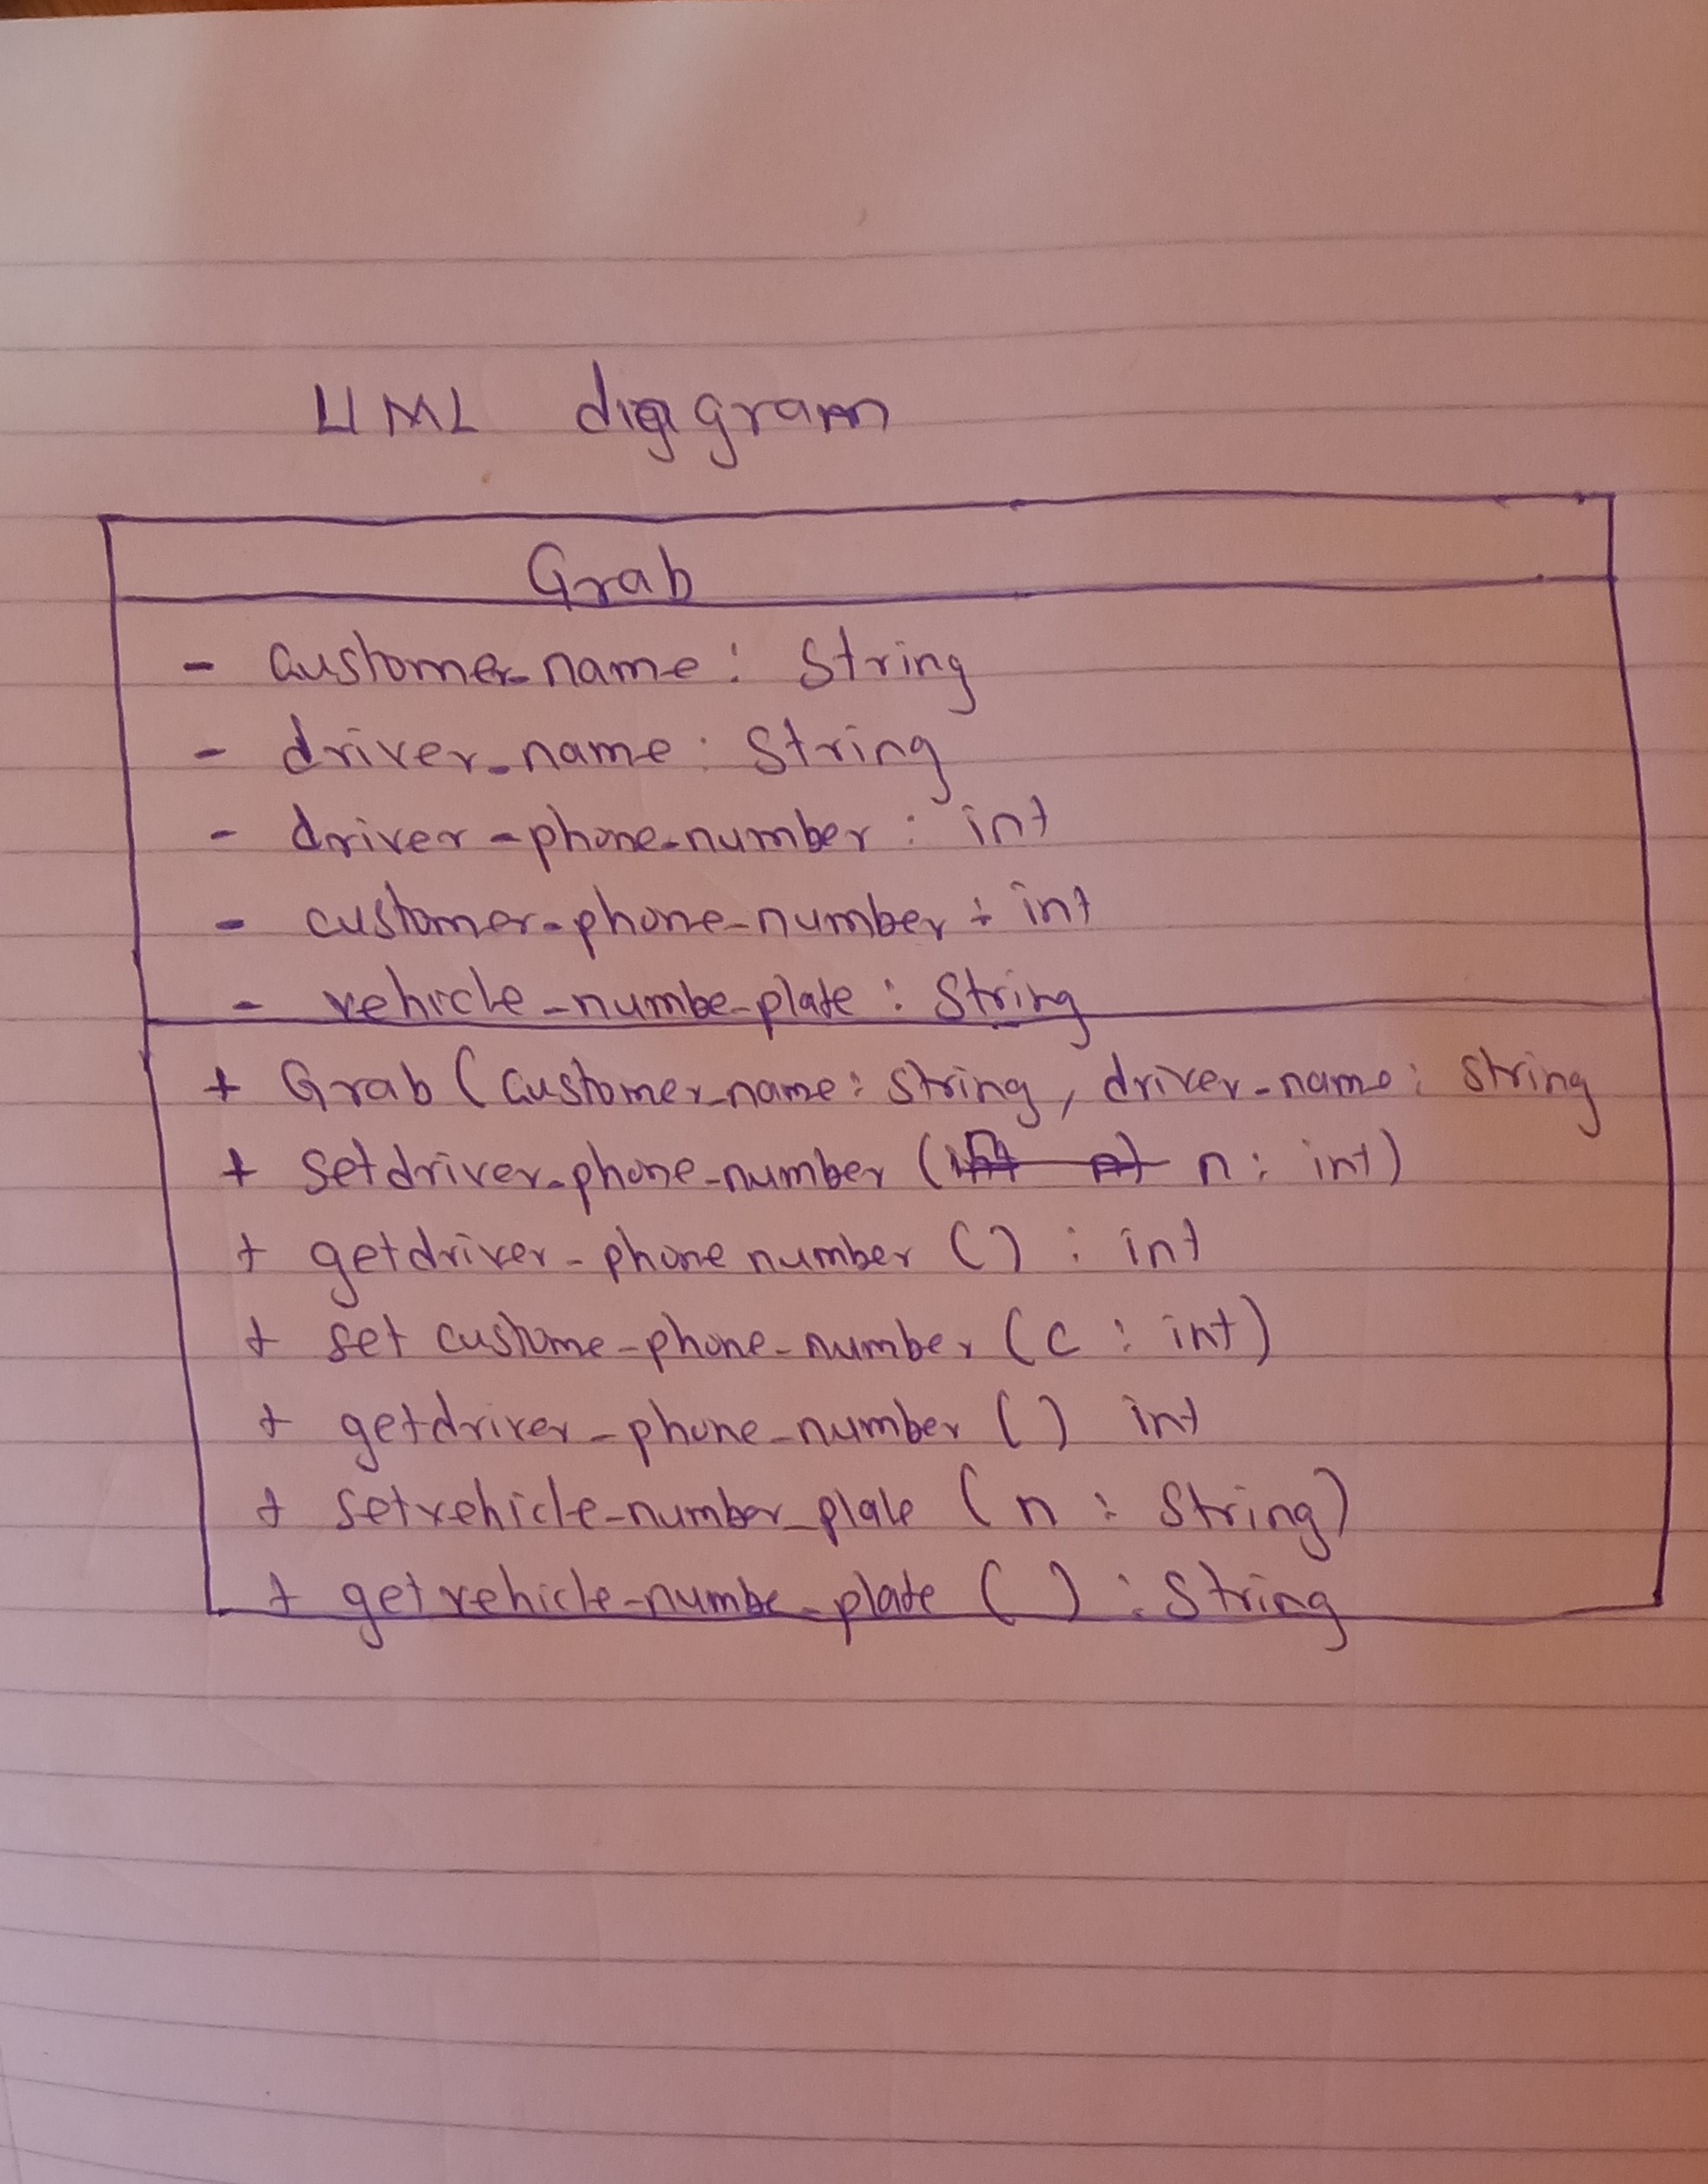 UML diagram
Grab
- customer_name : String
- driver_name : String
- driver_phone_number : int
- customer_phone_number : int
- vehicle_numbe_plate : String
+ Grab (customer_name : string, driver_name : string
+ setdriver_phone_number ( n : int)
+ getdriver_phone number () : int
+ set custome_phone_number (c : int)
+ getdriver_phone_number () int
+ setvehicle_number_plate (n : String)
+ getvehicle_numbe_plate () : String